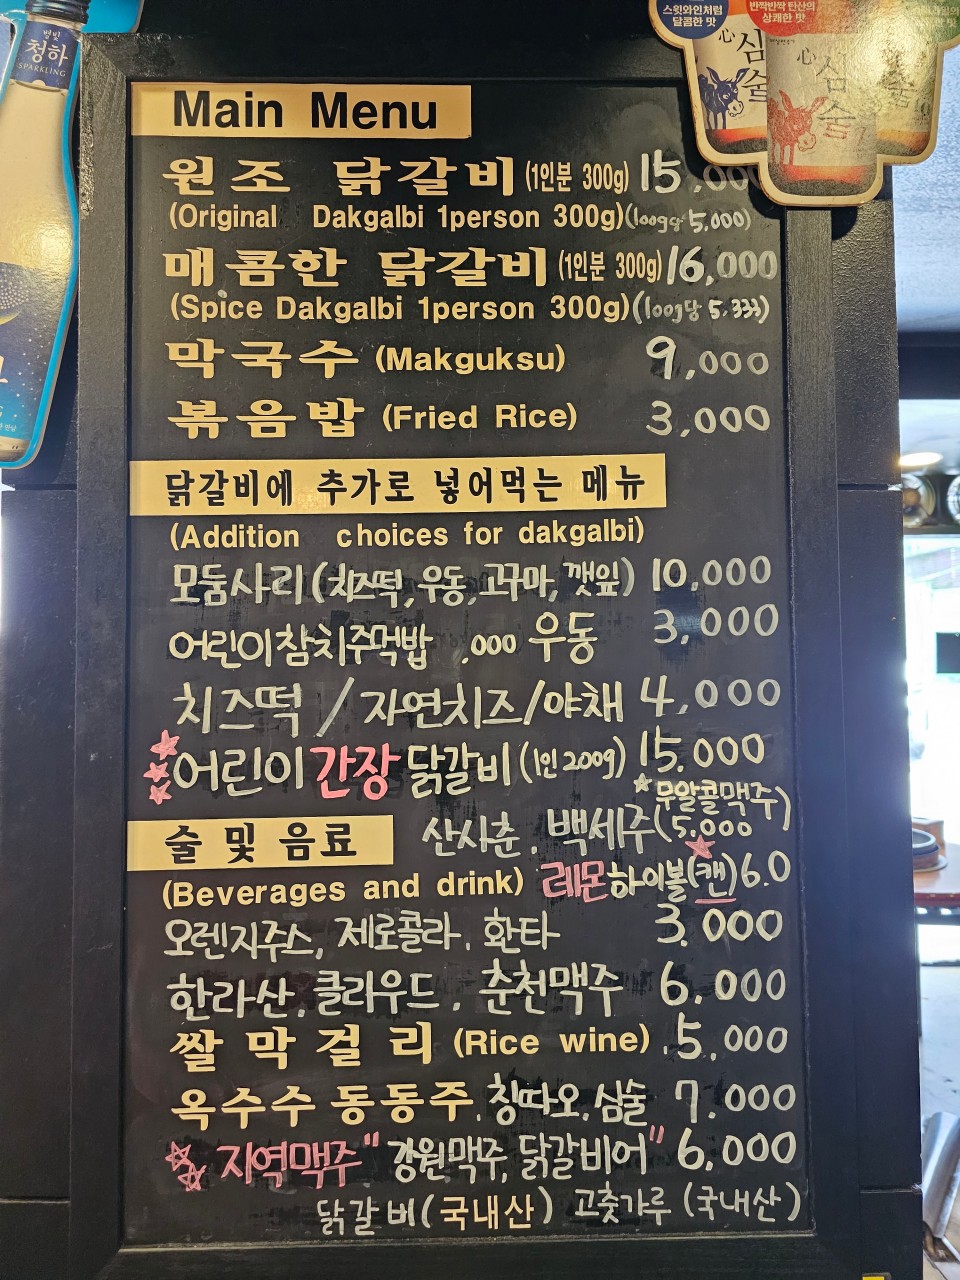 별빛
청하
SPARKLING
스윗와인처럼
달콤한 맛
반짝반짝 탄산의
상쾌한 맛
心 심술
心 심술 7
술
Main Menu
원조 닭갈비 (1인분 300g) 15,000
(Original Dakgalbi 1person 300g) (100g당 5,000)
매콤한 닭갈비 (1인분 300g) 16,000
(Spice Dakgalbi 1person 300g) (100g당 5,333)
막국수 (Makguksu) 9,000
볶음밥 (Fried Rice) 3,000
닭갈비에 추가로 넣어먹는 메뉴
(Addition choices for dakgalbi)
모둠사리 (치즈떡, 우동, 고구마, 깻잎) 10,000
어린이참치주먹밥 .000 우동 3,000
치즈떡 / 자연치즈 / 야채 4,000
어린이 간장 닭갈비 (1인 200g) 15.000
술 및 음료 산사춘, 백세주 (무알콜맥주) 5,000
(Beverages and drink) 레몬하이볼(캔) 6.0
오렌지주스, 제로콜라, 환타 3.000
한라산, 클라우드, 춘천맥주 6,000
쌀막걸리 (Rice wine) .5,000
옥수수 동동주, 칭따오, 심술 7.000
지역맥주 "강원맥주, 닭갈비어" 6,000
닭갈비 (국내산) 고춧가루 (국내산)